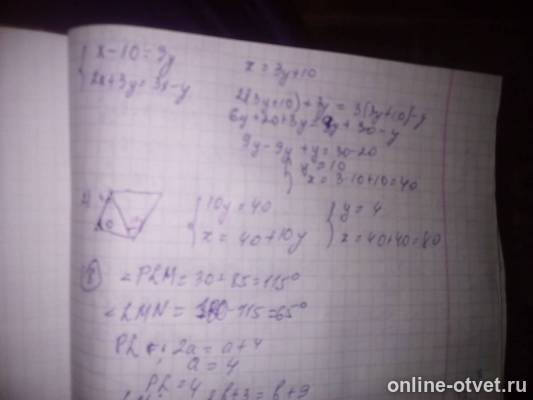 x - 10 = 3y
2x + 3y = 3x - y
x = 3y + 10
2(3y + 10) + 3y = 3(3y + 10) - y
6y + 20 + 3y = 9y + 30 - y
9y - 9y + y = 30 - 20
y = 10
x = 3·10 + 10 = 40
10y = 40
x = 40 + 10y
y = 4
x = 40 + 40 = 80
∠PLM = 30 + 85 = 115°
∠LMN = 180 - 115 = 65°
2a = a + 4
a = 4
PL = 4
online-otvet.ru